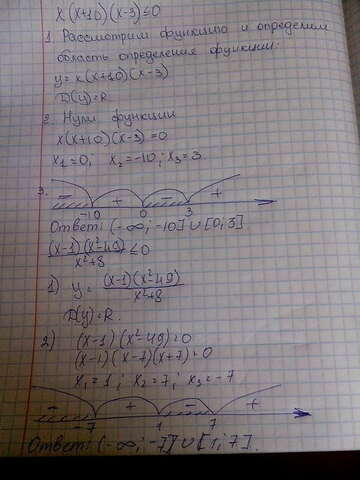 x(x+10)(x-3)≤0
1. Рассмотрим функцию и определим
область определения функции:
y=x(x+10)(x-3)
D(y)=R
2. Нули функции
x(x+10)(x-3)=0
x₁=0; x₂=-10; x₃=3.
3. - + - +
-10 0 3
Ответ: (-∞; -10] ∪ [0; 3]
(x-1)(x²-49)/x²+8 ≤0
1) y = (x-1)(x²-49)/x²+8
D(y)=R.
2) (x-1)(x²-49)=0
(x-1)(x-7)(x+7)=0
x₁=1; x₂=7; x₃=-7
- + - +
-7 1 7
Ответ: (-∞; -7] ∪ [1; 7].